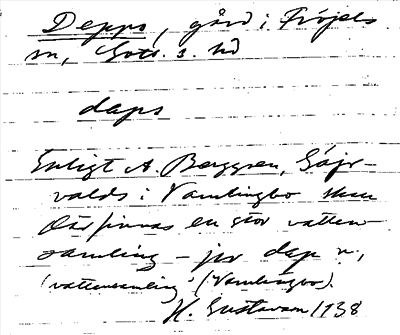 Depps, gård i Fröjels
sn, Gotl. s. hd
daps
Enligt A. Berggren, Sójr-
valds i Vamlingbo skall
där finnas en stor vatten-
samling – jfr dap n.,
'vattensamling' (Vamlingbo).
H. Gustavson 1938